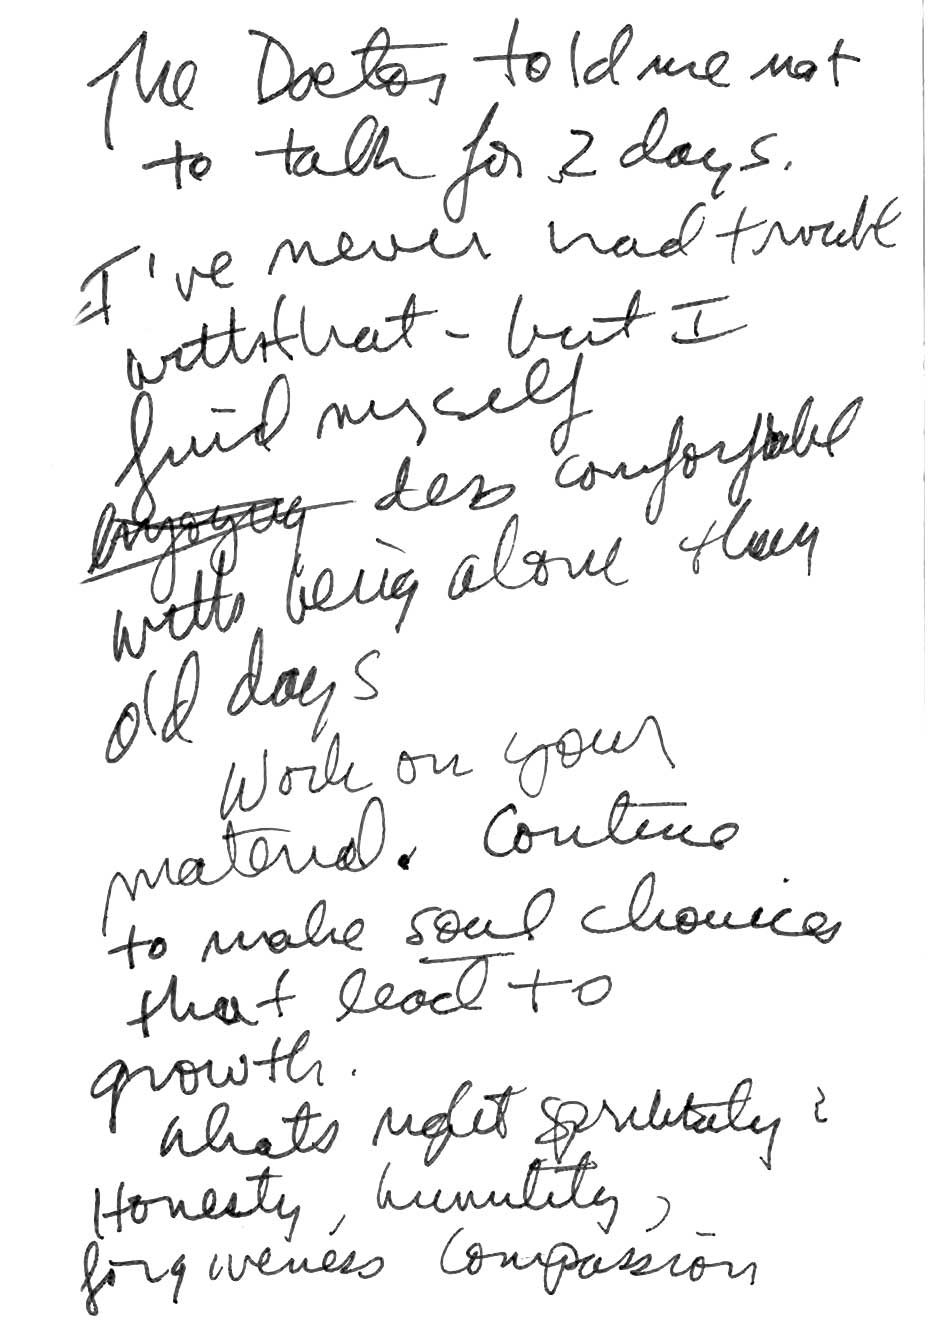 The Doctor told me not
to talk for 2 days.
I've never had trouble
with that - but I
find myself
enjoying less comfortable
with being alone then
old days
Work on your
material. Continue
to make soul choices
that lead to
growth.
Whats right spiritually?
Honesty, humility,
forgiveness Compassion